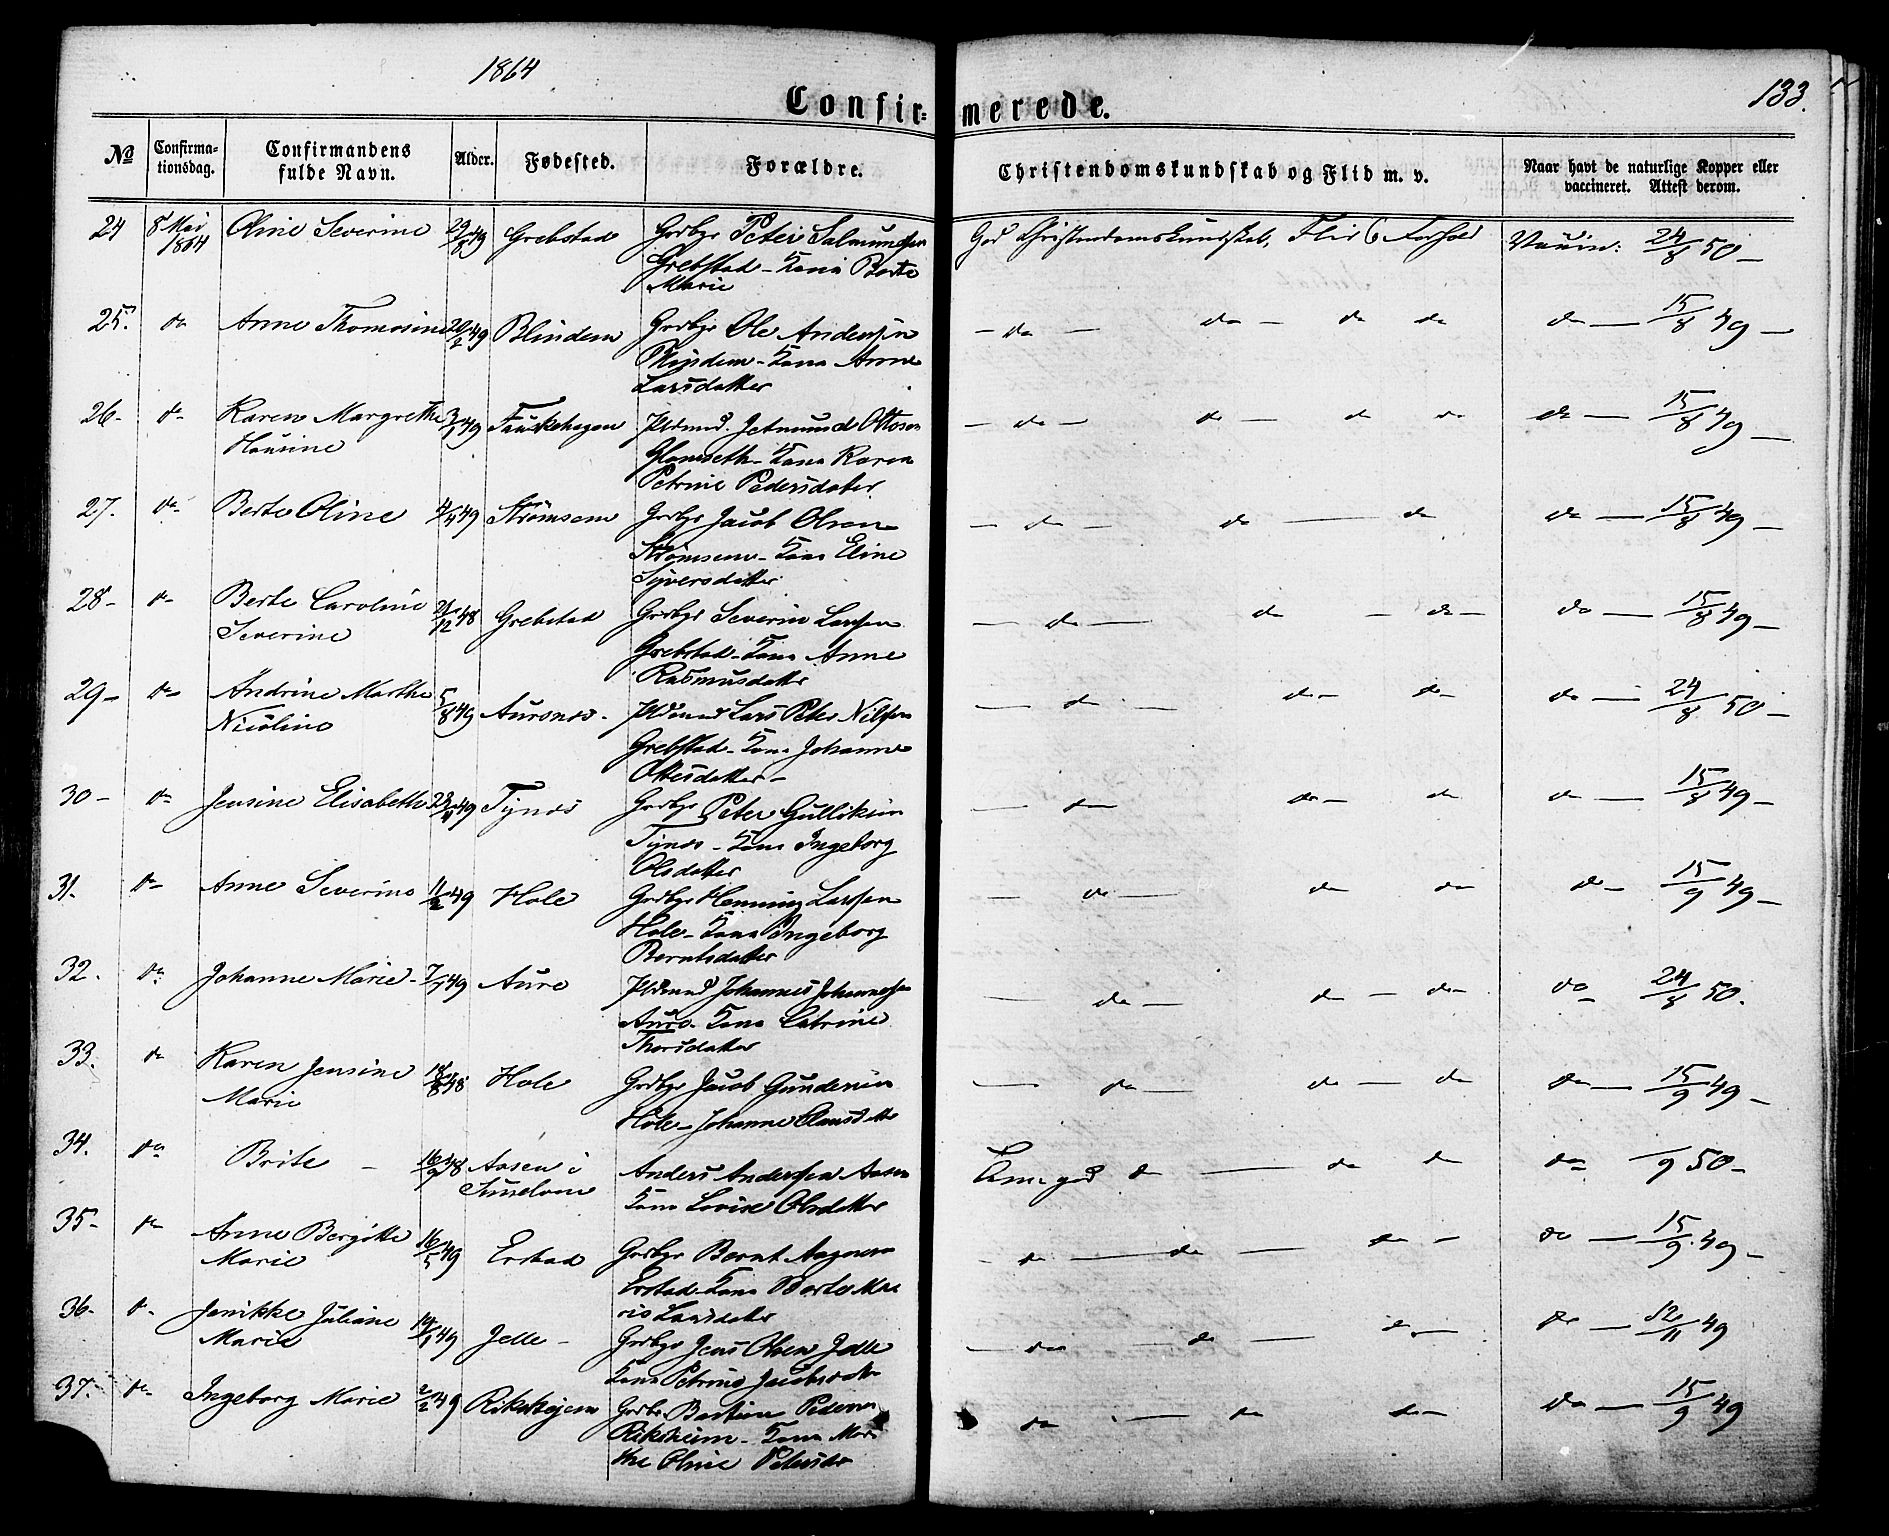 1864
133.
Confirmerede.
No
Confirmationsdag.
Confirmandens fulde Navn.
Alder.
Fødested.
Forældre.
Christendomskundskab og Flid m. v.
Naar havt de naturlige Kopper eller vaccineret. Attest derom.
24 8 Mai 1864 Oline Severine 49 Grebstad Grdbgr Peter Salmundsen God Christendomskundskab, Flid & Forhold Vaccin: 24/8 50 –
Grebstad – Kona Berte
Marie
25. do Anne Thomasine 20/2 49 Blindem Grdbgr Ole Andersen – do – do – do do do – 15/8 49 –
Blindem – Kona Anne
Larsdatter
26 – do Karen Margrethe 3/1 49 Fauskehagen Pldsmd. Jetmund Ottosen – do – do – do do do – 15/8 49 –
Hansine Glomseth – Kona Karen
Petrine Pedersdatter
27. do Berte Oline 4/4 49 Strømsem Grdbgr Jacob Olsen – do – do – do do – 15/8 49 –
Strømsem – Kona Eline
Syversdatter
28 – do Berte Caroline 21/12 48 Grebstad Grdbgr Severin Larsen – do – do – do – do – 15/8 49 –
Severine Grebstad – Kona Anne
Rasmusdatter
29 – do Andrine Marthe 5/8 49 Aursnes – Pldsmd Lars Peter Nilsen – do – do – do – do – 24/8 50 –
Nicoline Grebstad – Kona Johanne
Ottesdatter –
30 – do Jensine Elisabeth 49 Tynes Grdbgr Peter Gulliksen – do do – do do – 15/8 49 –
Tynes – Kona Ingeborg
Olsdatter
31. do Anne Severine 11/2 49 Hole Grdbgr Henning Larsen – do – do do do – 15/9 49 –
Hole – Kona Ingeborg
Berntsdatter
32. do Johanne Marie – 7/1 49 Aure Pldsmd Johannes Johannesen – do – do – do – do – 24/8 50.
Aure – Kona Catrine
Thorsdatter
33. do Karen Jensine 18/8 48 Hole Grdbgr Jacob Gundersen – do – do – do do – 15/9 49 –
Marie Hole – Johanne Clausdatter
34. do Brite – 16/9 48 Aasen i Anders Andersen Aasen god do – do do do – /9 50 –
Kona Lovise Olsdatter
35 – do Anne Bergitte 16/5 49 Erstad Grdbgr Bernt Aagesen – do – do – do – do – 15/9 49 –
Marie Erstad – Kona Berte Ma
rie Larsdatter
36 – do Janikke Juliane 14/1 49 Jelle – Grdbgr Jens Olsen Jelle – do – do – do – do – 12/11 49
Marie Kona Petrine Jacobsdatter
37. do Ingeborg Marie 2/2 49 Rikshejem Grdbr Bastian Pedersen do – do do – do – 15/9 49
Riksheim – Kona Mar
the Oline Petersdtr